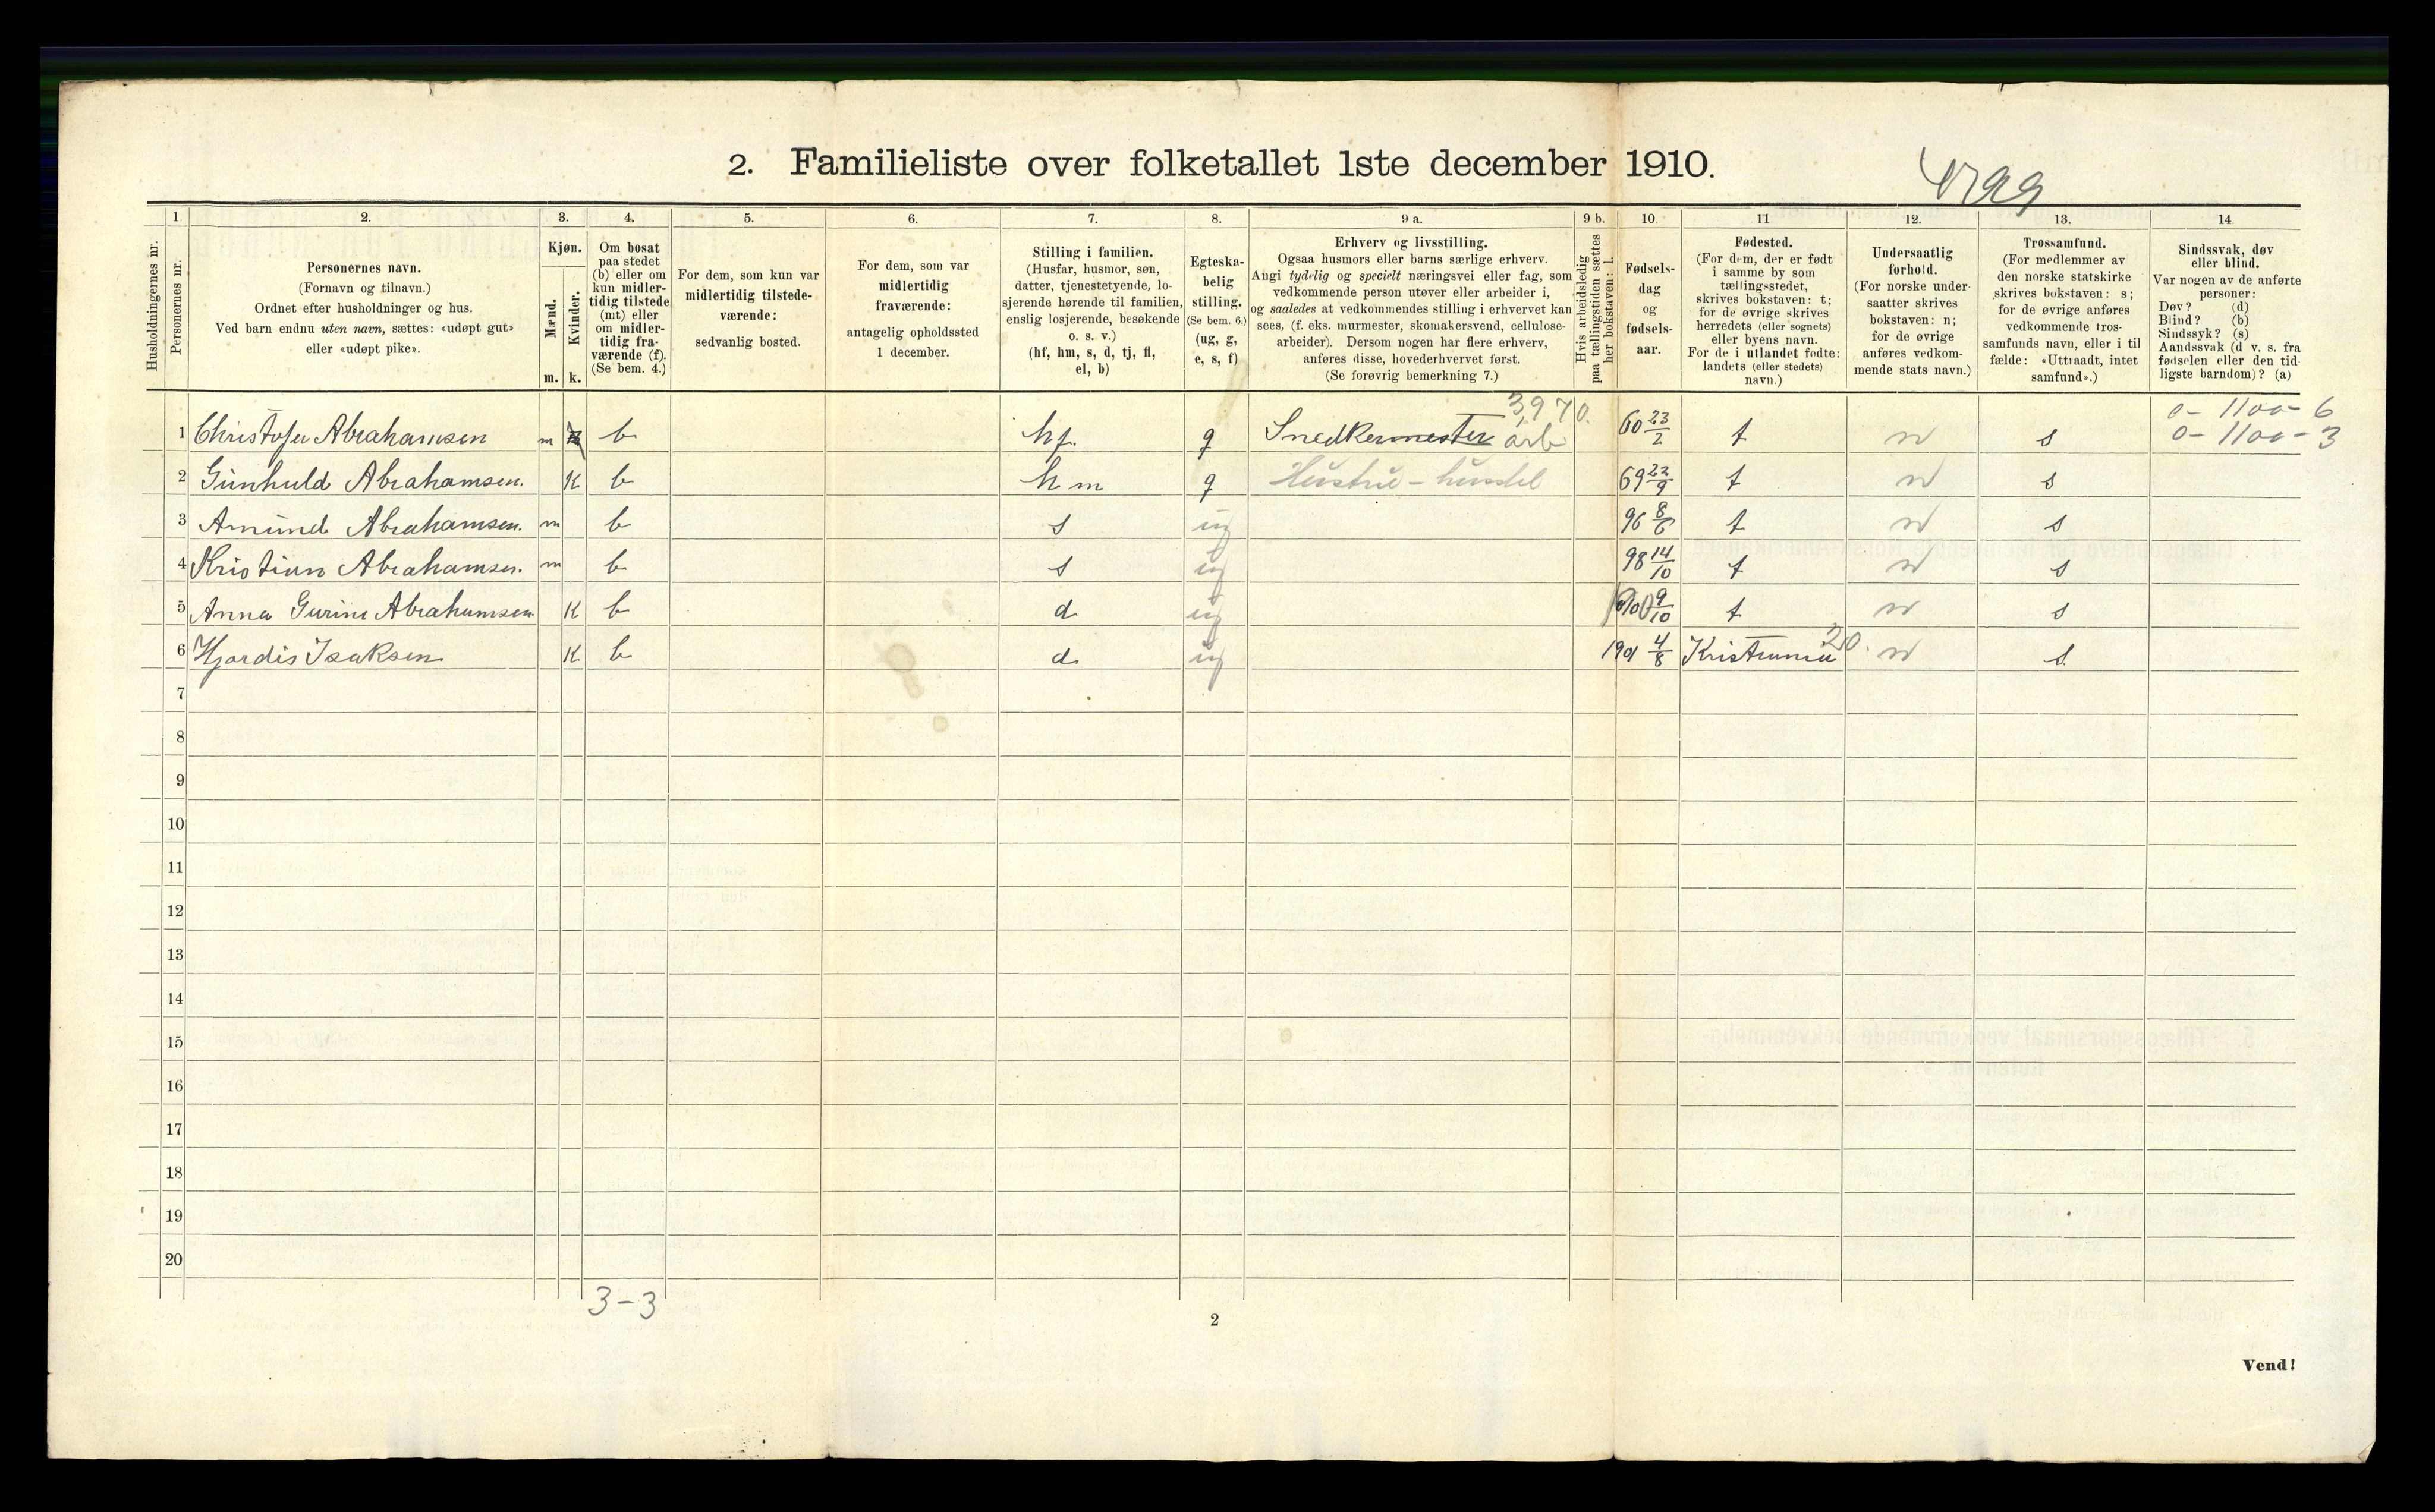 2. Familieliste over folketallet 1ste december 1910.
Husholdningernes nr.
1.
Personernes nr.
2.
Personernes navn.
(Fornavn og tilnavn.)
Ordnet efter husholdninger og hus.
Ved barn endnu uten navn, sættes: «udøpt gut»
eller «udøpt pike».
3.
Kjøn.
Mænd.
Kvinder.
m. k.
4.
Om bosat
paa stedet
(b) eller om
kun midler-
tidig tilstede
(mt) eller
om midler-
tidig fra-
værende (f).
(Se bem. 4.)
5.
For dem, som kun var
midlertidig tilstede-
værende:
sedvanlig bosted.
6.
For dem, som var
midlertidig
fraværende:
antagelig opholdssted
1 december.
7.
Stilling i familien.
(Husfar, husmor, søn,
datter, tjenestetyende, lo-
sjerende hørende til familien,
enslig losjerende, besøkende
o. s. v.)
(hf, hm, s, d, tj, fl,
el, b)
8.
Egteska-
belig
stilling.
(Se bem. 6.)
(ug, g,
e, s, f)
9 a.
Erhverv og livsstilling.
Ogsaa husmors eller barns særlige erhverv.
Angi tydelig og specielt næringsvei eller fag, som
vedkommende person utøver eller arbeider i,
og saaledes at vedkommendes stilling i erhvervet kan
sees, (f. eks. murmester, skomakersvend, cellulose-
arbeider). Dersom nogen har flere erhverv,
anføres disse, hovederhvervet først.
(Se forøvrig bemerkning 7.)
9 b.
Hvis arbeidsledig
paa tællingstiden sættes
her bokstaven: l.
10.
Fødsels-
dag
og
fødsels-
aar.
11
Fødested.
(For dem, der er født
i samme by som
tællingsstedet,
skrives bokstaven: t;
for de øvrige skrives
herredets (eller sognets)
eller byens navn.
For de i utlandet fødte:
landets (eller stedets)
navn.)
12.
Undersaatlig
forhold.
(For norske under-
saatter skrives
bokstaven: n;
for de øvrige
anføres vedkom-
mende stats navn.)
13.
Trossamfund.
(For medlemmer av
den norske statskirke
skrives bokstaven: s;
for de øvrige anføres
vedkommende tros-
samfunds navn, eller i til
fælde: «Uttraadt, intet
samfund».)
14.
Sindssvak, døv
eller blind.
Var nogen av de anførte
personer:
Døv? (d)
Blind? (b)
Sindssyk? (s)
Aandssvak (d v. s. fra
fødselen eller den tid-
ligste barndom)? (a)
3970. 0 - 1100 - 6
1 Christofer Abrahamsen m b hf. g Snedkermester arb 60 23/2 t n s 0 - 1100 - 3
2 Gunhuld Abrahamsen. K b hm g Hustru - husstel 69 23/9 t n s
3 Amund Abrahamsen. m b s ug 96 8/6 t n s
4 Kristian Abrahamsen. m b s ug 98 14/10 t n s
5 Anna Gurine Abrahamsen K b d ug 9/10 t n s
6 Hjordis Isaksen K b d ug 1901 4/8 Kristiania 20. n s.
7
8
9
10
11
12
13
14
15
16
17
18
19
20
3-3
2
Vend!